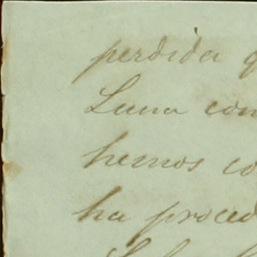 perdida q
Luna con
hemos co
ha proced